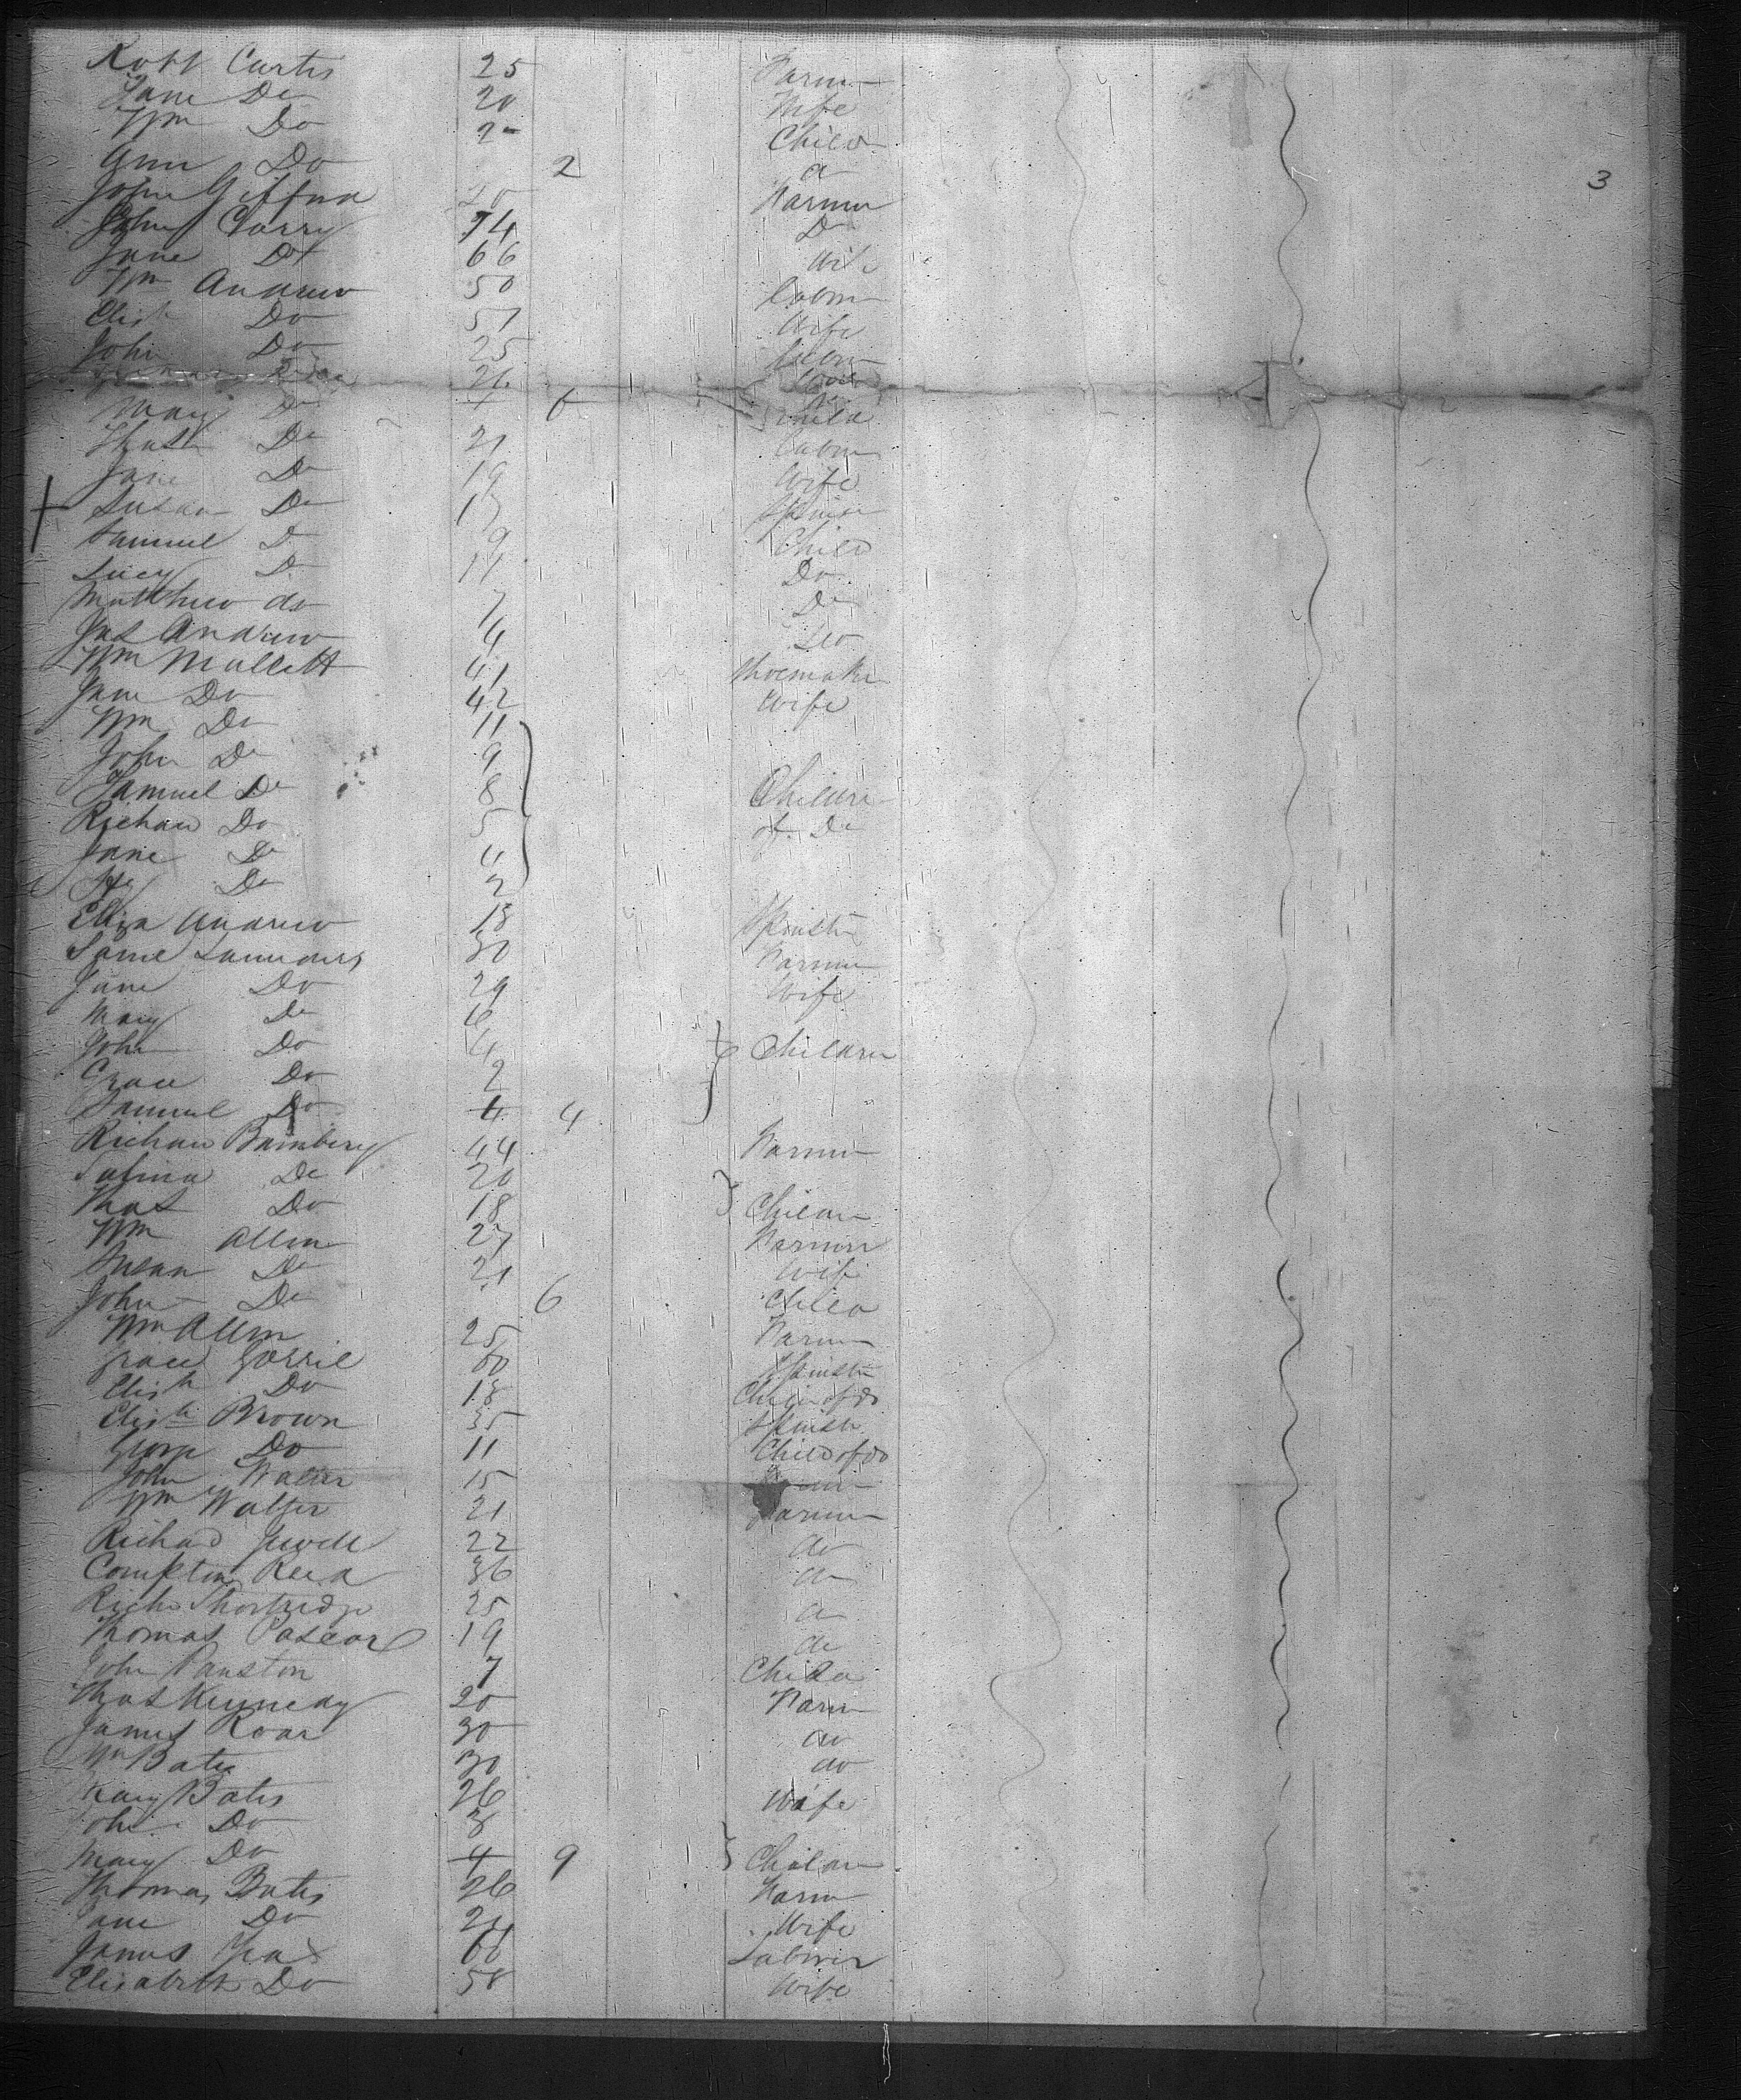 Robt Curtis 25 Farmer
Jane Do 20 Wife
Wm Do 2 Child
Ann Do 2 do
3
John Gifford 20 Farmer
John Carry 74 Do
Jane Do 66 Wife
Wm Andrew 50 Labor
Elizh Do 51 Wife
John Do 25 Labor
26
Mary Do 6 Child
Thos Do 21 Labor
Jane Do 19 Wife
Susan Do Spinster
Samuel D 9 Child
Lucy D 11 Do
Matthew do 7 Do
Jas Andrew 4 Do
Wm Mallett 41 Shoemaker
Jane Do 42 Wife
Wm Do 11
John Do 9
Samuel Do 8 Children
Richard Do 5 of Do
Jane Do 4
Do 2
Eliza Andrew 18 Spinster
Saml Saunders 30 Farmer
Jane Do 29 Wife
Mary Do 6
John Do 4 Children
Grace Do 2
Samuel Do 4
Richard Bambery 44 Farmer
Do 20
Thos Do 18 Children
Wm Allin 27 Farmer
Susan Do 21 Wife
John Do 6 Child
Wm Allin 25 Farmer
Grace 60 Spinster
Elizh Do 18 Child of do
Elizh Brown 35 Spinster
George Do 11 Child of do
John Walter 15
Wm Walter 21 Farmer
Richard Jewell 22 do
Compton Reed 36 do
Richd Shortridge 25 do
Thomas Pascoe 19 do
John 7 Child
Thos Kennedy 20 Farm
James Roar 30 do
Wm Bates 30 do
Mary Bates 26 Wife
John Do 3
Mary Do 9 Children
Thomas Bates 26 Farm
Jane Do 24 Wife
James 60 Laborer
Elizabeth Do 58 Wife